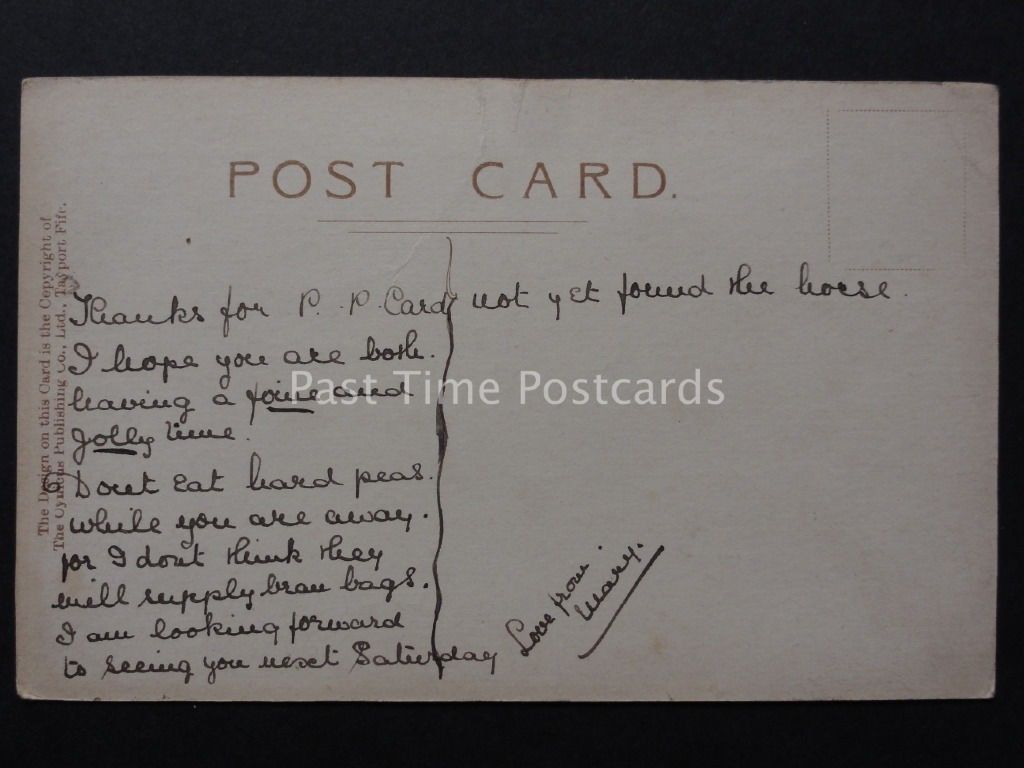 POST CARD.
The Design on this Card is the Copyright of
The Cynicus Publishing Co., Ltd., Tayport Fife.
Thanks for P.P. Card not yet found the horse.
I hope you are both.
having a fine and
Jolly time.
Dont Eat hard peas.
while you are away.
for I dont think they
will supply bran bags.
I am looking forward
to seeing you next Saturday
Love from
Mary.
Past Time Postcards